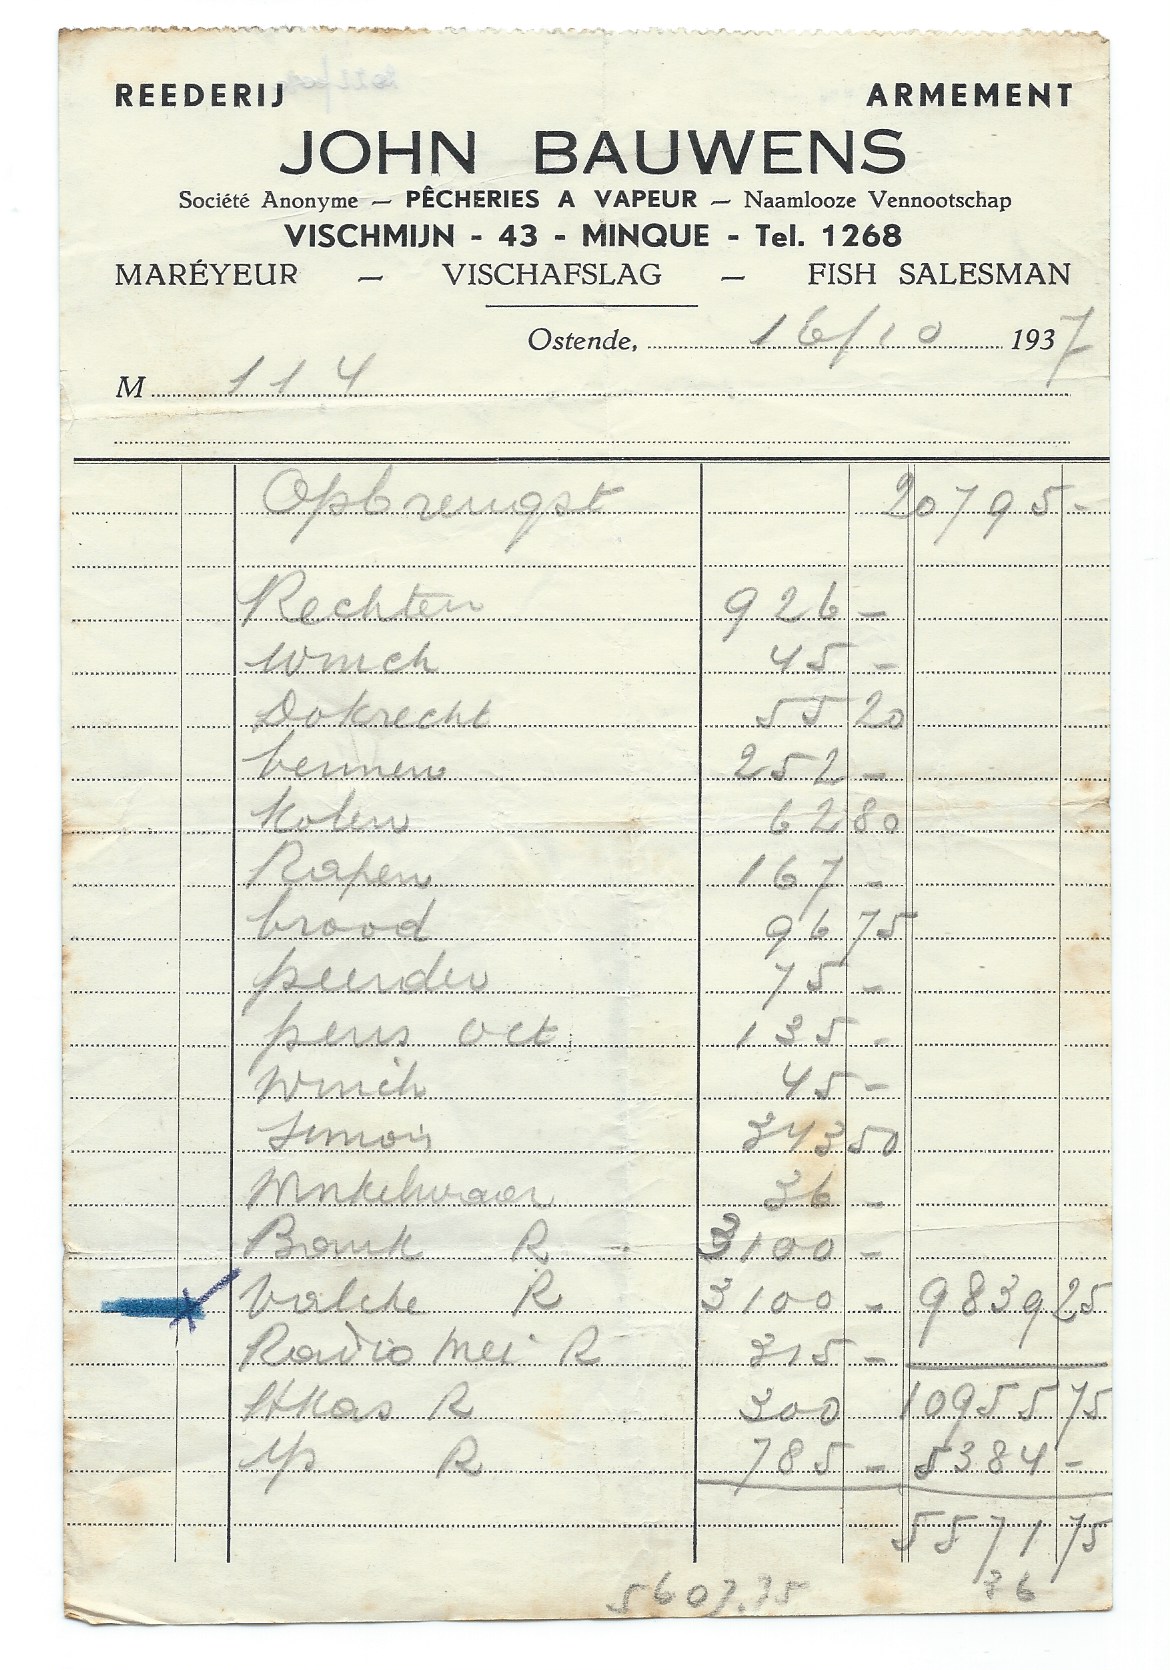 REEDERIJ ARMEMENT
JOHN BAUWENS
Société Anonyme — PÊCHERIES A VAPEUR — Naamlooze Vennootschap
VISCHMIJN - 43 - MINQUE - Tel. 1268
MARÉYEUR — VISCHAFSLAG — FISH SALESMAN
Ostende, 16/10 1937
M 114
Opbrengst 20795-
Rechten 926-
Winch 45-
Dokrecht 55 20
bennen 252-
Kolen 62 80
Rapen 167-
brood 96 75
peerden 75-
pens Oct 135-
Winch 45-
Simon 343 50
Winkelwaar 36-
Bank R 3100-
Valcke R 3100- 9839 25
Radio Mei R 315-
R 300 10955 75
ijs R 785- 5384-
5571 75
5607.75 36